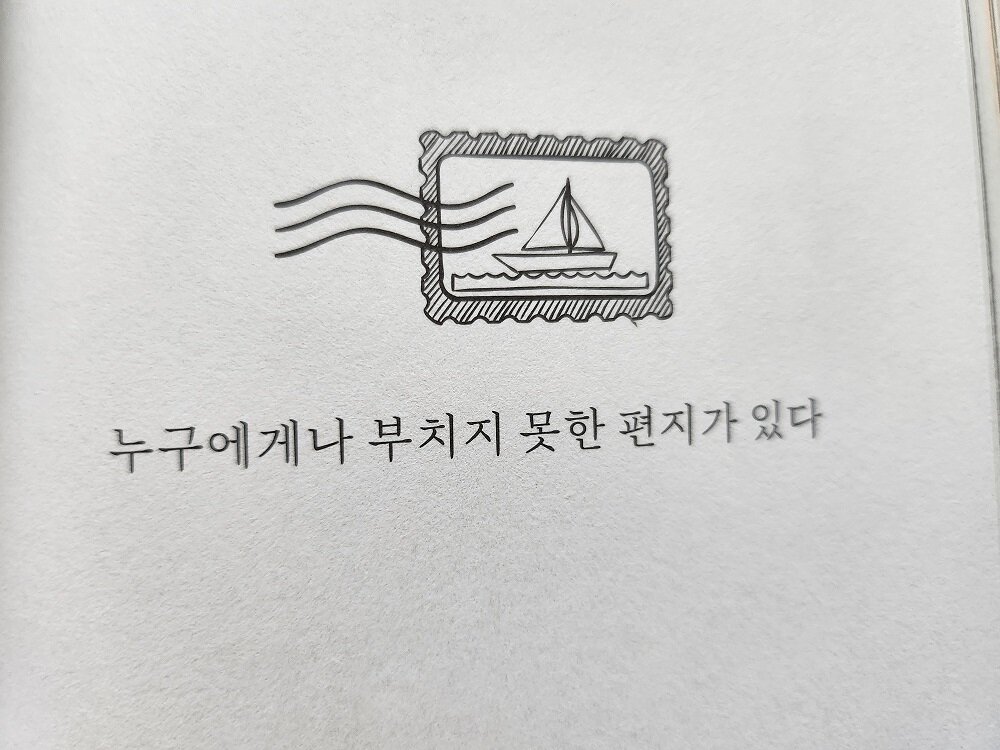 누구에게나 부치지 못한 편지가 있다